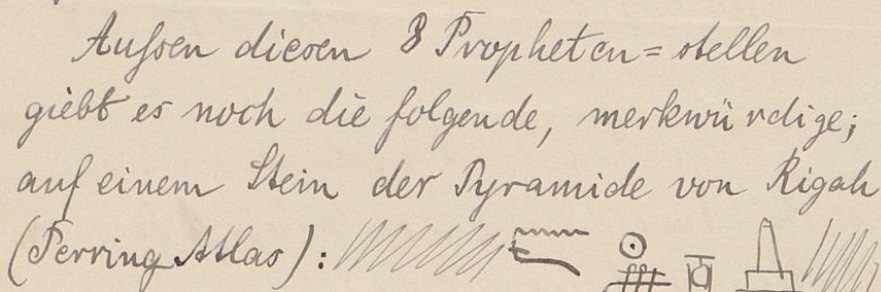 Aufsen diesen 8 Propheten=stellen
giebt es noch die folgende, merkwürdige;
auf einem Stein der Pyramide von Rigah
(Perring Atlas):